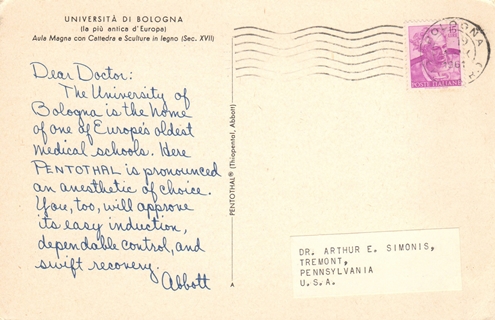 UNIVERSITÀ DI BOLOGNA
(la più antica d'Europa)
Aula Magna con Cattedra e Sculture in legno (Sec. XVII)
Dear Doctor:
The University of
Bologna is the home
of one of Europe's oldest
medical schools. Here
PENTOTHAL is pronounced
an anesthetic of choice.
You, too, will approve
its easy induction,
dependable control, and
swift recovery.
Abbott
PENTOTHAL® (Thiopental, Abbott)
A
BOLOGNA
1961
15
POSTE ITALIANE
DR. ARTHUR E. SIMONIS,
TREMONT,
PENNSYLVANIA
U.S.A.